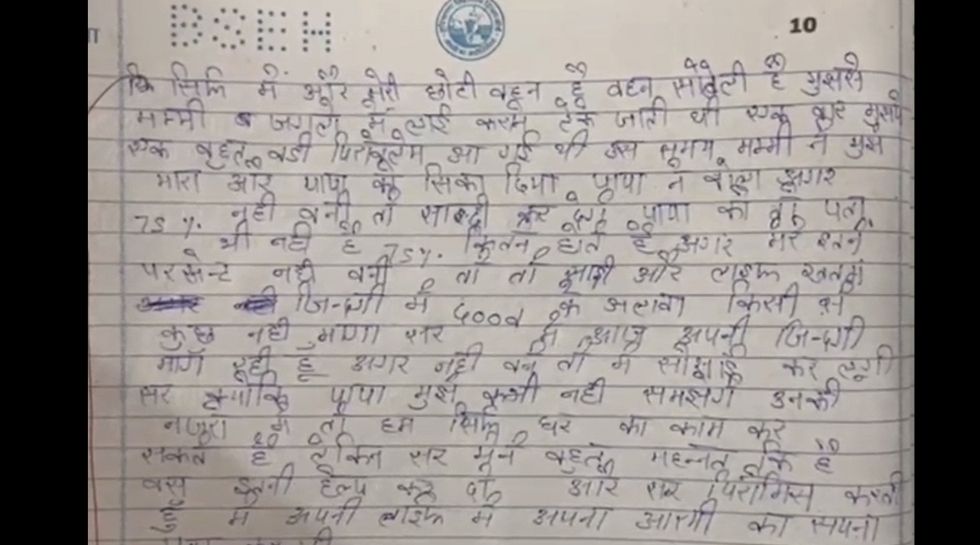 BSEH
10
कि सिर्फ में और मेरी छोटी बहन है बहन सोतेली है मुझसे
मम्मी व जगुला में लाई करम टेक जाती थी एक बार मुझपे
एक बहुत बडी पिरोब्लम आ गई थी उस समय मम्मी ने मुझे
मारा और पापा को सिका दिया पापा ने बोला अगर
75 %. नही बनी तो साद्दी कर देगे पापा को कुछ पता
भी नही है 75%. कितने होते है अगर मेरे इतने
परसेन्ट नही बनी तो तो सादी और लाइफ खतम
जिन्दगी में good के अलावा किसी से
कुछ नही मागा सर में आज अपनी जिन्दगी
माग रही हू अगर नही बने तो में सोसाइड कर लूगी
सर क्योकि पापा मुझे कभी नही समझेगे उनकी
नजरो में तो हम सिर्फ घर का काम कर
सकते है लेकिन सर मेने बहुत मेहन्नत कि है
बस इतनी हेल्प कर दो और सर पिरोमिस करती
हु में अपनी लाइफ में अपना आरमी का सपना